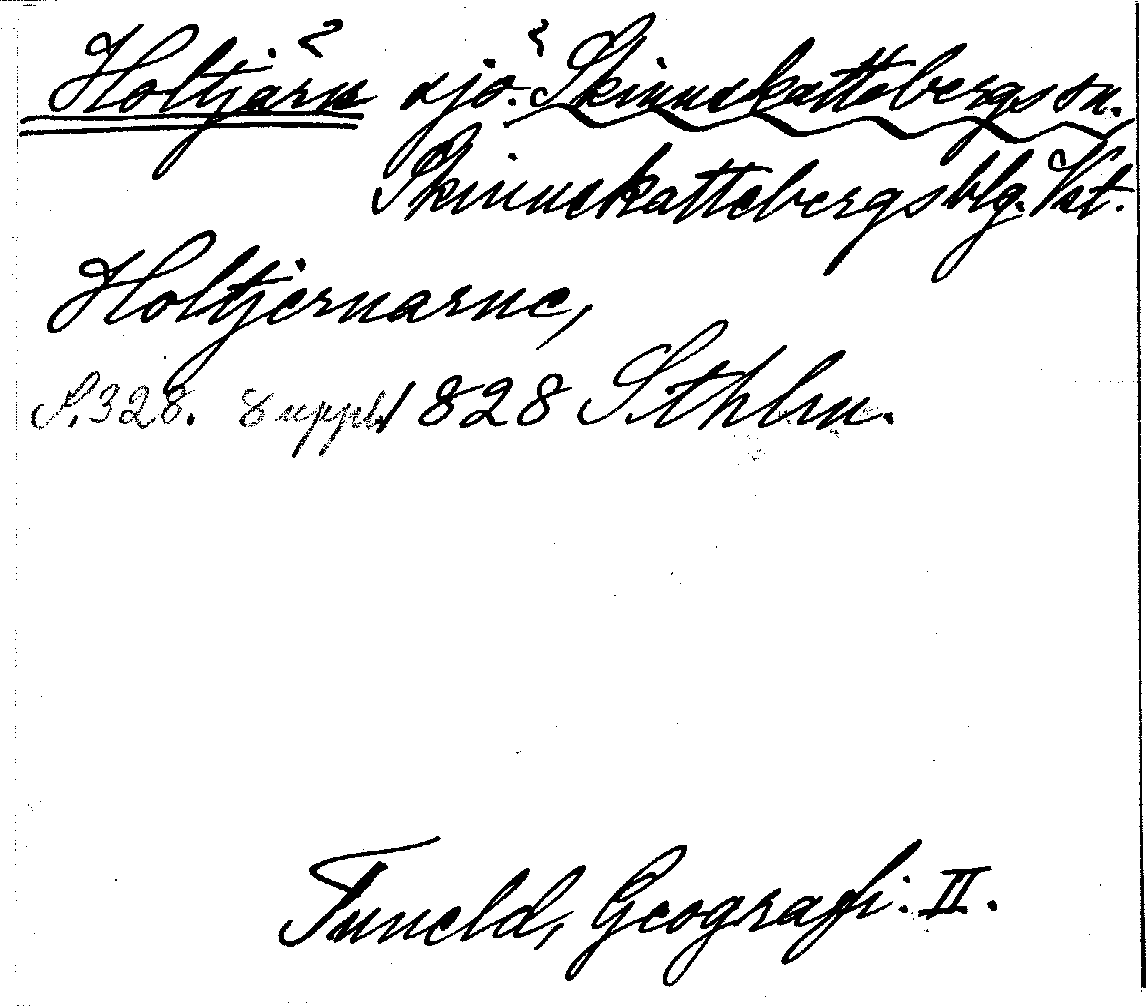 Holtjärn sjö. Skinnskattebergs sn.
Skinnskattebergs blg. Vst.
Holtjernarne,
S. 328. Suppl. 1828 Sthlm.
Tuneld, Geografi. II.